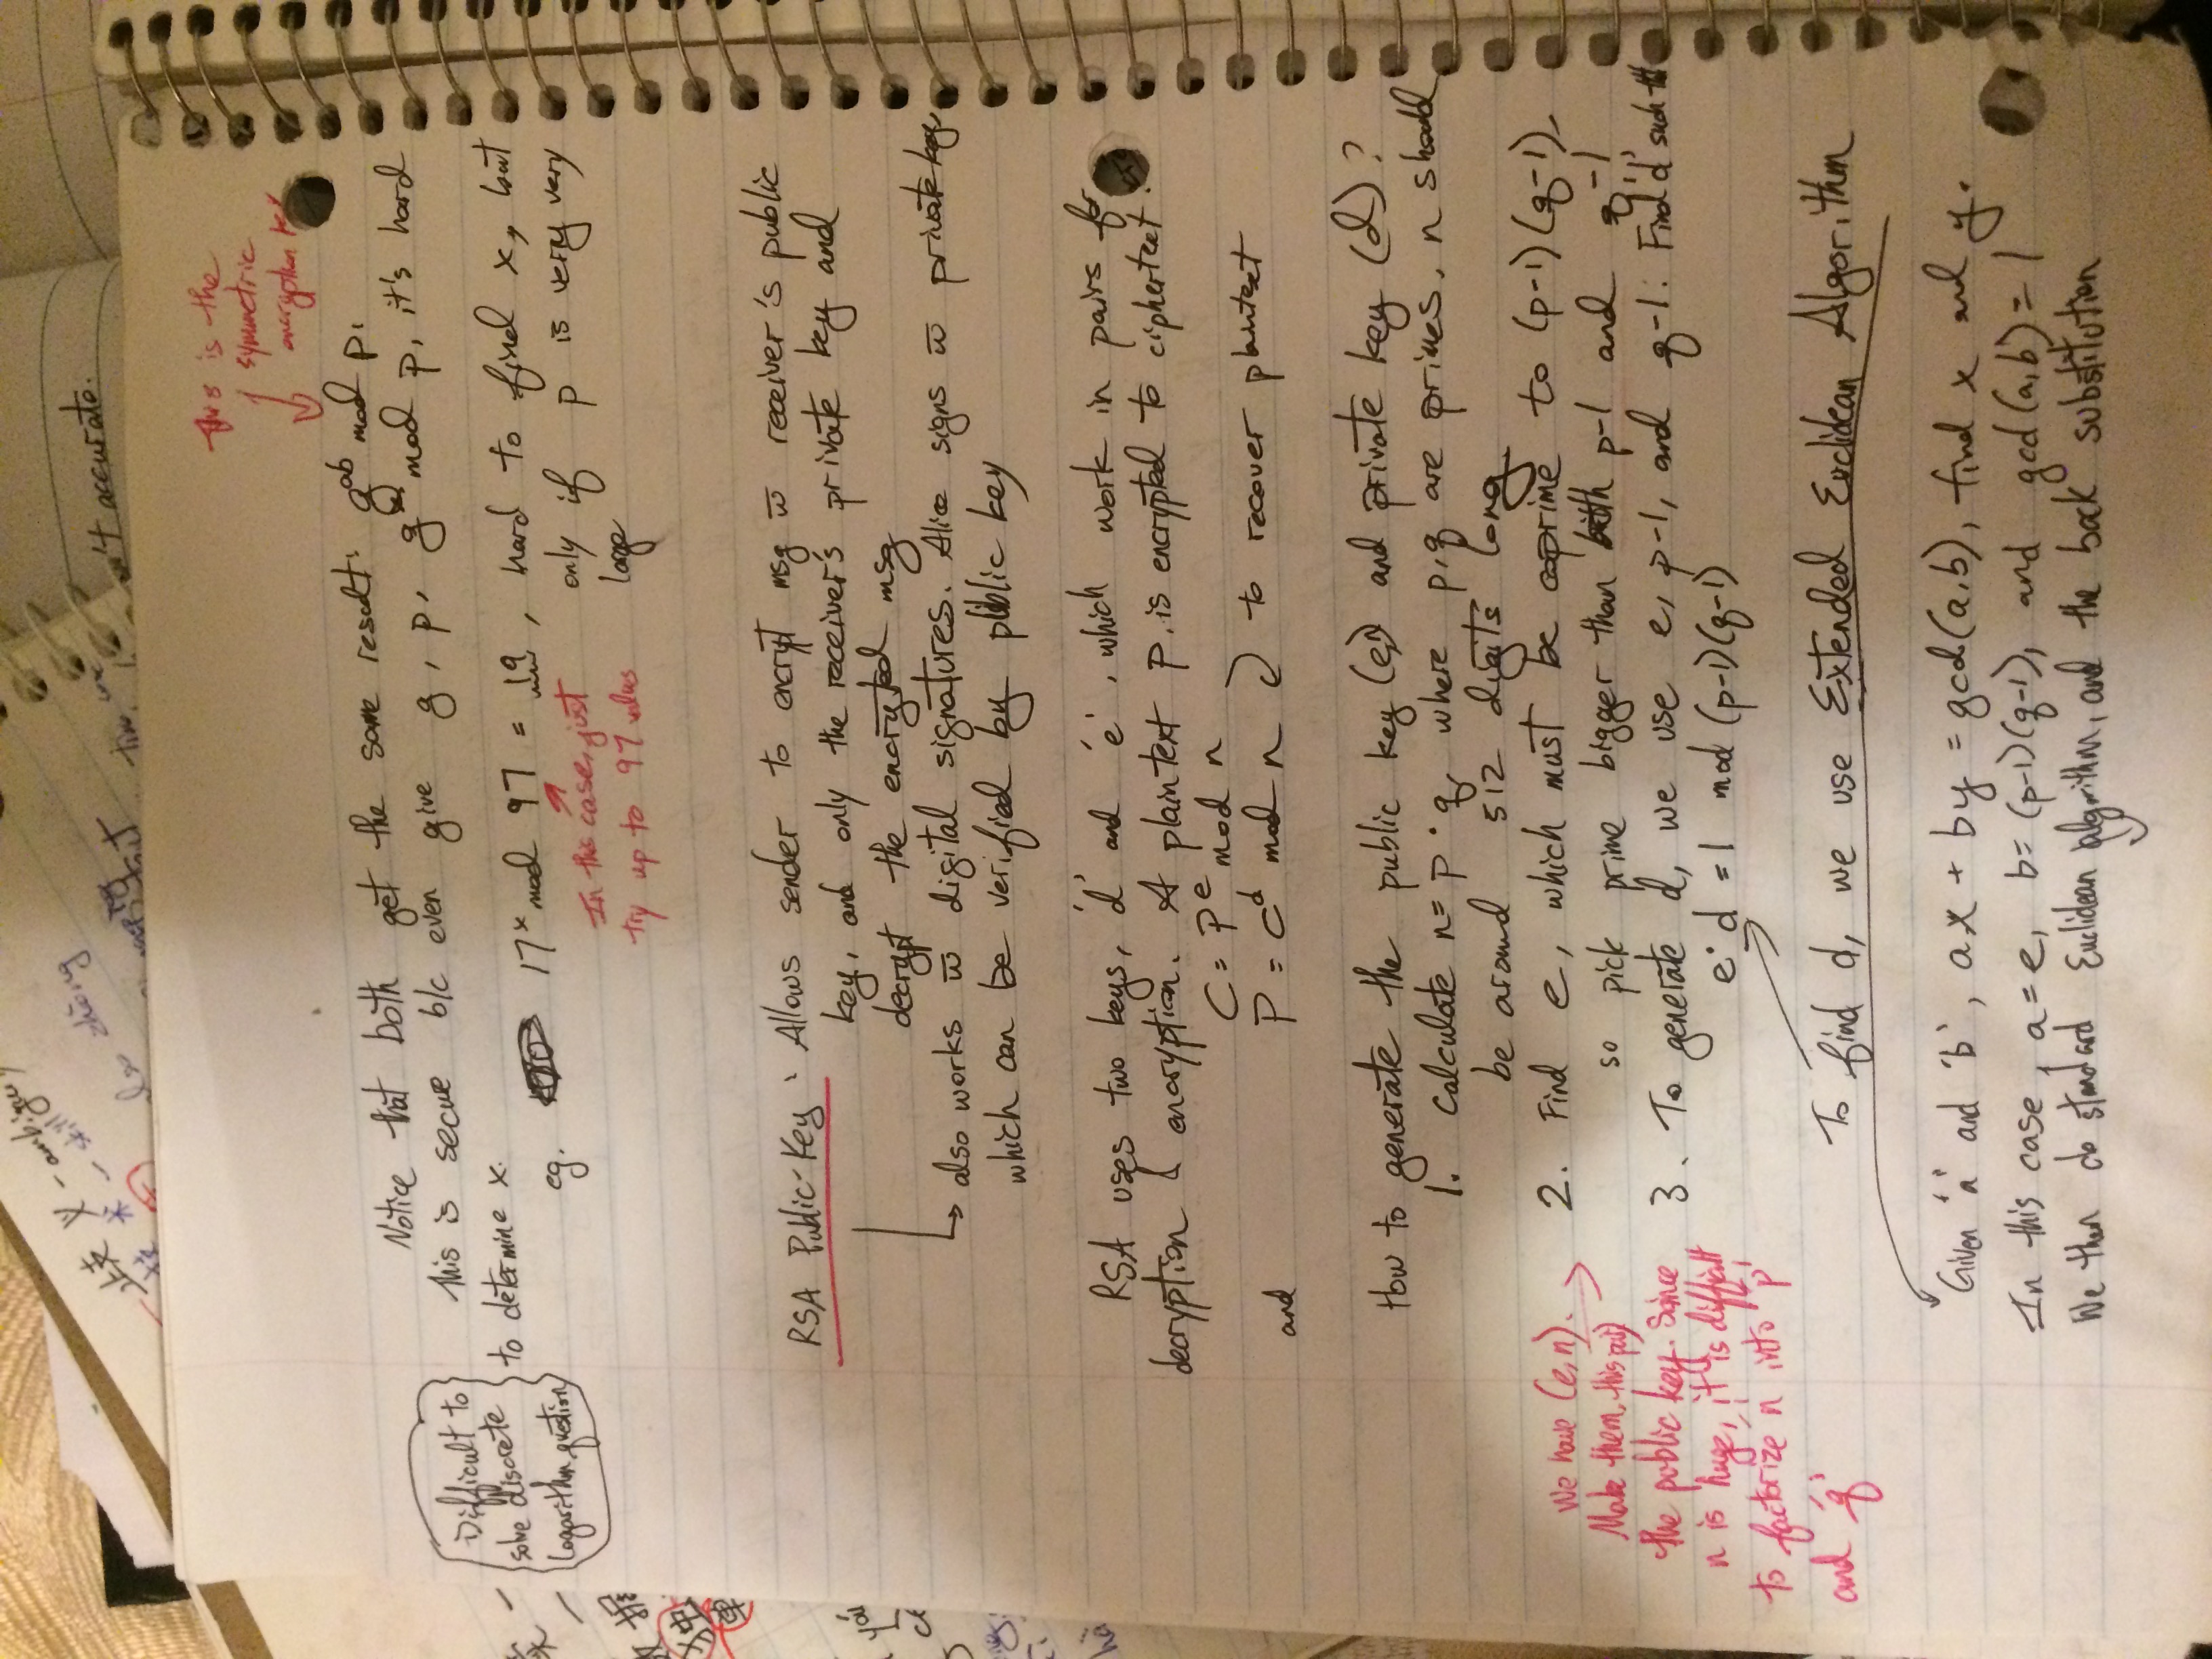 义 - ambigu
技术 - skill
also zhòng
n't accurate.
this is the
symmetric
encryption key
Notice that both get the same result: g^ab mod p.
This is secure b/c even give g, p, g^x mod p, it's hard
to determine x.
Difficult to
solve discrete
logarithm question
eg. 17^x mod 97 = 19, hard to find x, but
only if p is very very
large
In this case, just
try up to 97 values
RSA Public-Key : Allows sender to encrypt msg w̅ receiver's public
key, and only the receiver's private key and
decrypt the encrypted msg
also works w̅ digital signatures. Alice signs w̅ private key,
which can be verified by public key
RSA uses two keys, 'd' and 'e', which work in pairs for
decryption & encryption. A plaintext P, is encrypted to ciphertext.
C = P^e mod n
and P = C^d mod n to recover plaintext
How to generate the public key (e,n) and private key (d)?
1. Calculate n = p · q, where p,q are primes, n should
be around 512 digits long
2. Find e, which must be coprime to (p-1)(q-1),
so pick prime bigger than both p-1 and q-1
3. To generate d, we use e, p-1, and q-1: Find 'd' such
e·d = 1 mod (p-1)(q-1)
we have (e,n).
Make them, this pair)
the public key. Since
n is huge, it is difficult
to factorize 'n' into 'p'
and 'q'
To find d, we use Extended Euclidean Algorithm
Given 'a' and 'b', ax + by = gcd(a,b), find x and y.
In this case, a = e, b = (p-1)(q-1), and gcd(a,b) = 1
We then do standard Euclidean algorithm, and the back substitution